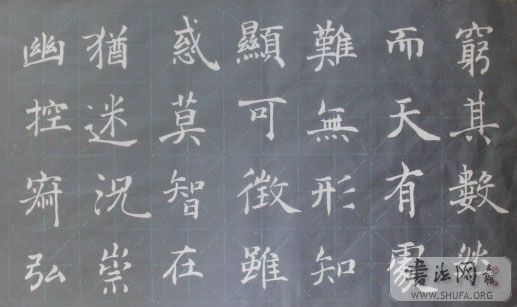 窮其數然
而天有處
難無形知
顯可徵雖
惑莫智在
猶迷況崇
幽控寂弘
書法网
WWW.SHUFA.ORG